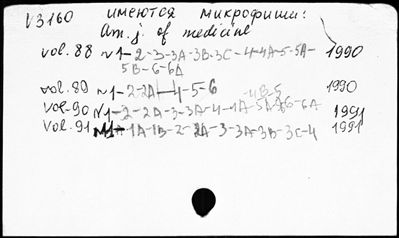 V3160 имеются микрофиши:
Am. j. of medicine
vol. 88 N1-2-3-3A-3B-3C-4-4A-5-5A- 1990
5B-6-6A
vol. 89 N1-2-2A-4-5-6 -4B-5 1990
vol. 90 N1-2-2A-3-3A-4-4A-5A-6-6A 1991
vol. 91 1A-1B-2-2A-3-3A-3B-3C-4 1991